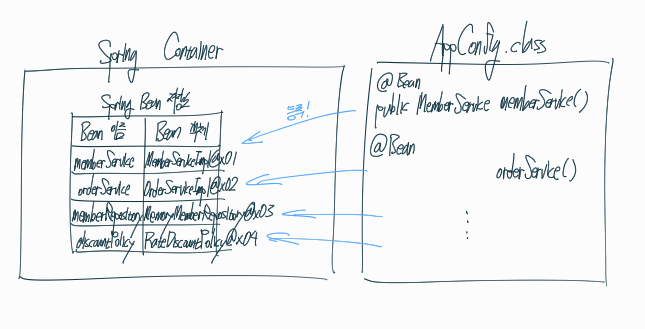 Spring Container
AppConfig.class
Spring Bean 저장소
Bean 이름 Bean 객체
memberService MemberServiceImpl@x01
orderService OrderServiceImpl@x02
memberRepository MemoryMemberRepository@x03
discountPolicy RateDiscountPolicy@x04
호출!
@Bean
public MemberService memberService()
@Bean
orderService()